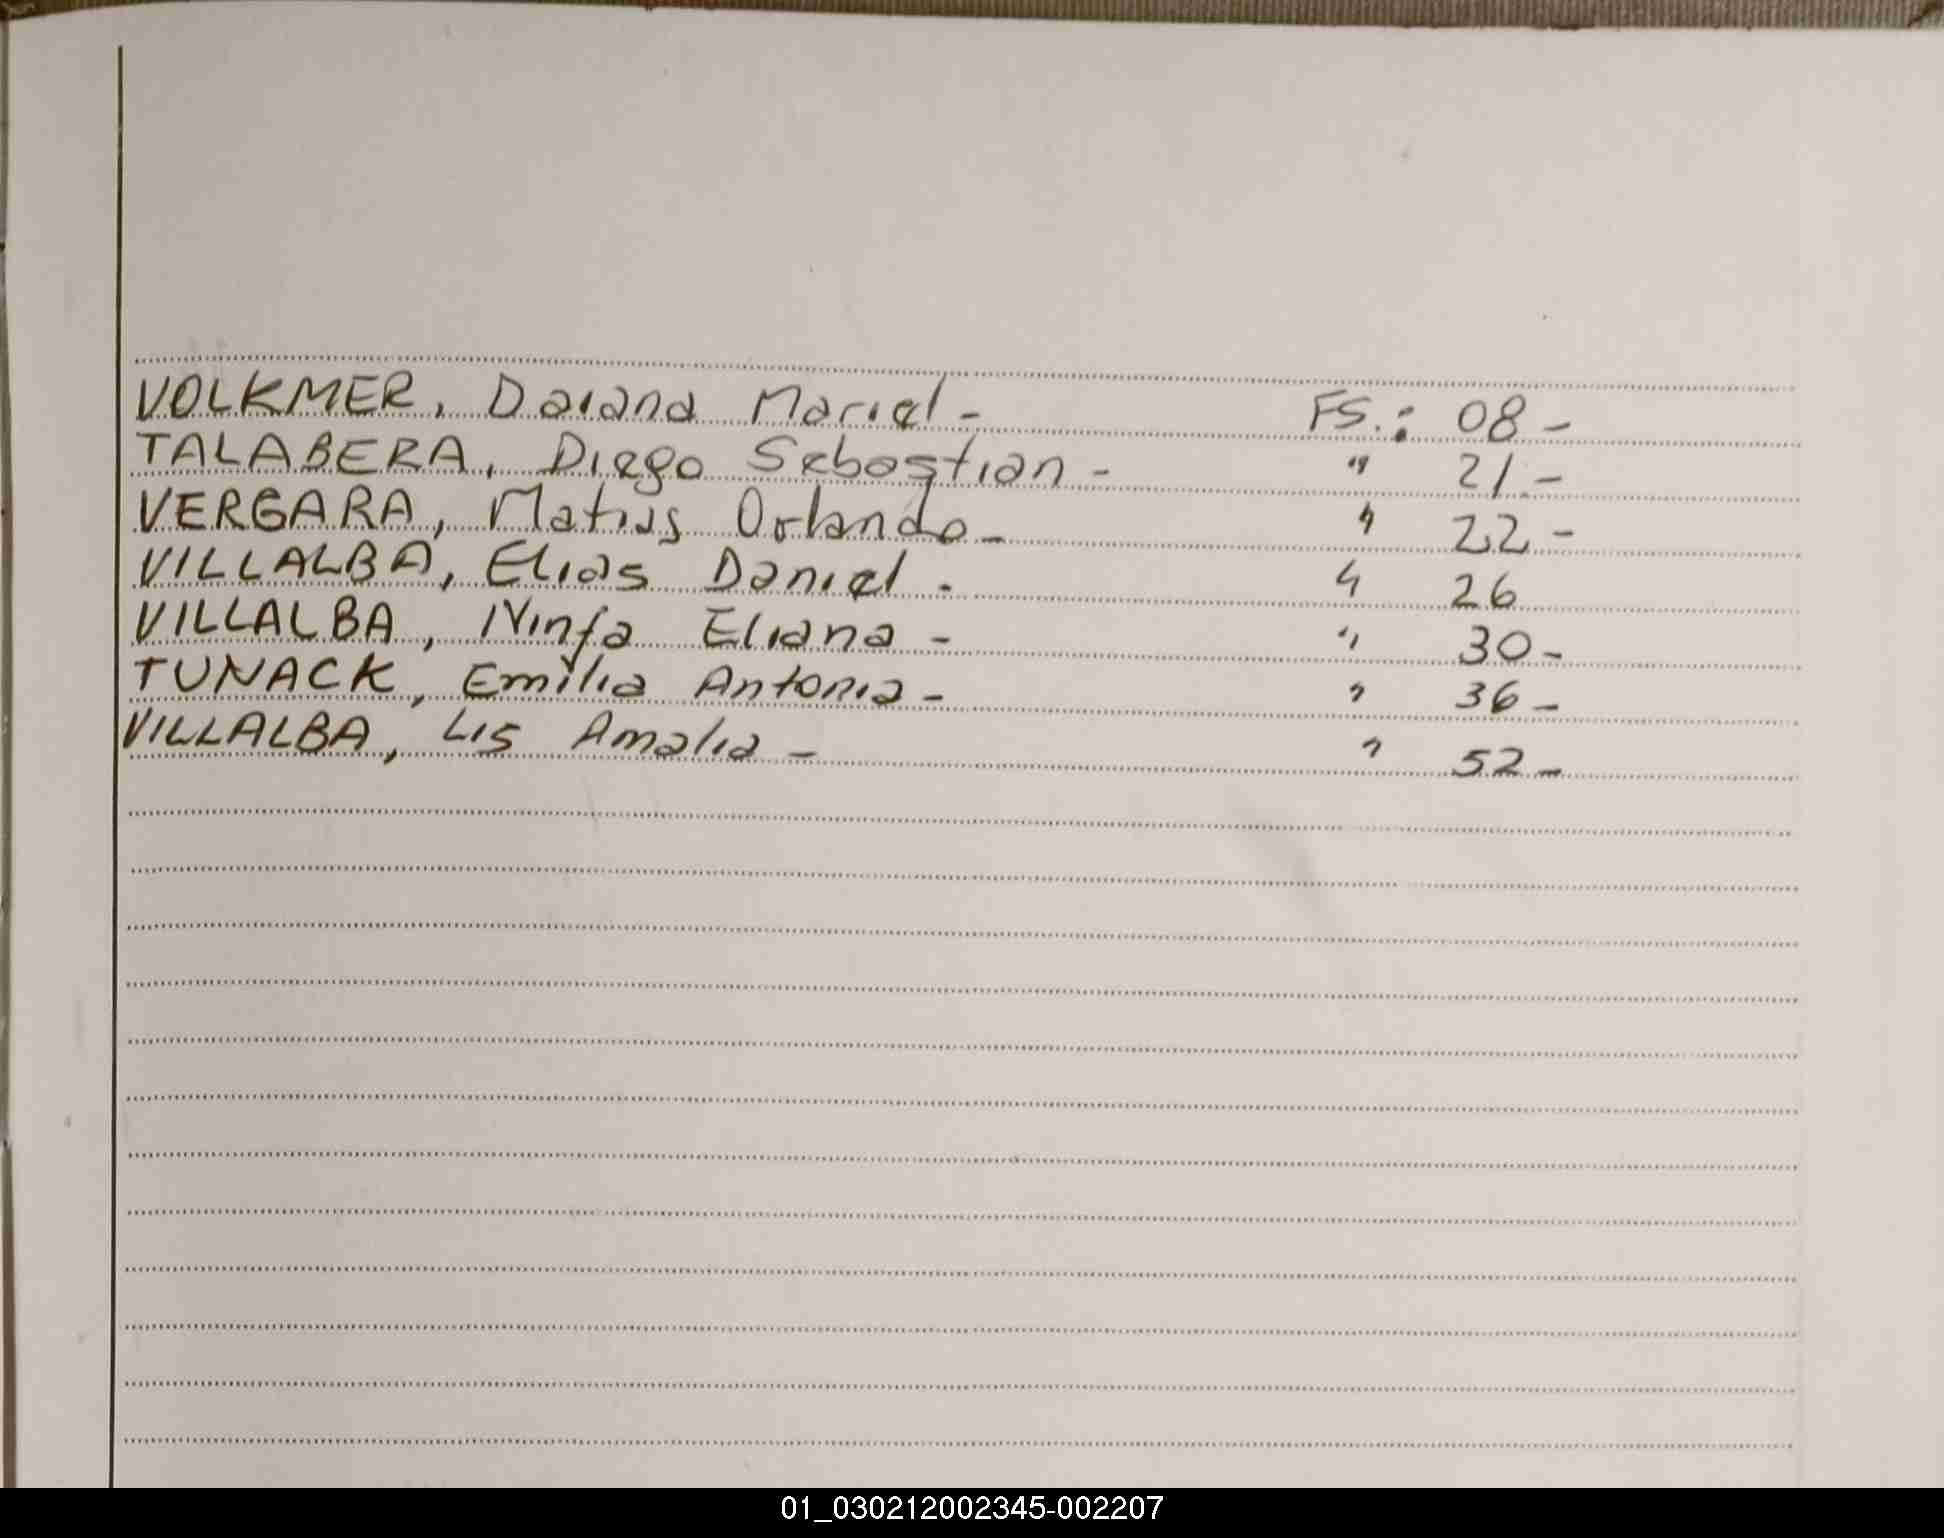 VOLKMER, Daiana Mariel - FS.: 08 -
TALABERA, Diego Sebastian - " 21 -
VERGARA, Matias Orlando - " 22 -
VILLALBA, Elias Daniel . " 26
VILLALBA, Ninfa Eliana - " 30 -
TUNACK, Emilia Antonia - " 36 -
VILLALBA, Lis Amalia - " 52 -
01_030212002345-002207